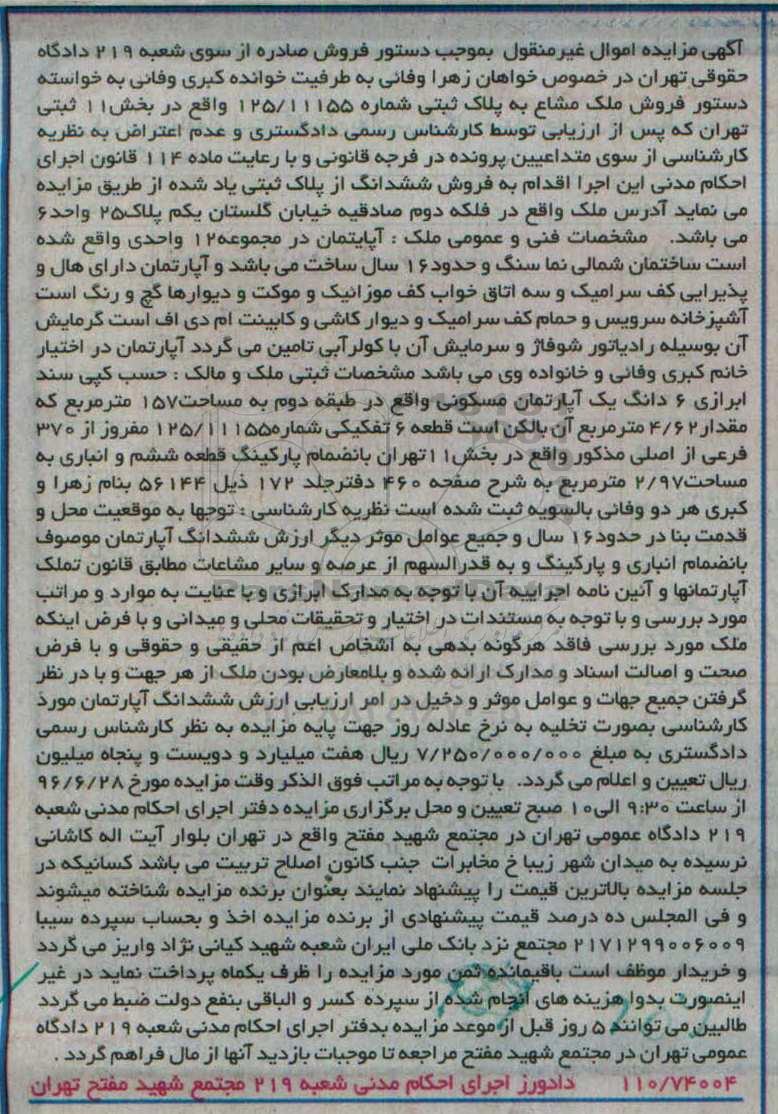 آگهی مزایده اموال غیرمنقول بموجب دستور فروش صادره از سوی شعبه ۲۱۹ دادگاه
حقوقی تهران در خصوص خواهان زهرا وفائی به طرفیت خوانده کبری وفائی به خواسته
دستور فروش ملک مشاع به پلاک ثبتی شماره ۱۲۵/۱۱۱۵۵ واقع در بخش۱۱ ثبتی
تهران که پس از ارزیابی توسط کارشناس رسمی دادگستری و عدم اعتراض به نظریه
کارشناسی از سوی متداعیین پرونده در فرجه قانونی و با رعایت ماده ۱۱۴ قانون اجرای
احکام مدنی این اجرا اقدام به فروش ششدانگ از پلاک ثبتی یاد شده از طریق مزایده
می نماید آدرس ملک واقع در فلکه دوم صادقیه خیابان گلستان یکم پلاک۲۵ واحد۶
می باشد. مشخصات فنی و عمومی ملک : آپایتمان در مجموعه۱۲ واحدی واقع شده
است ساختمان شمالی نما سنگ و حدود۱۶ سال ساخت می باشد و آپارتمان دارای هال و
پذیرایی کف سرامیک و سه اتاق خواب کف موزائیک و موکت و دیوارها گچ و رنگ است
آشپزخانه سرویس و حمام کف سرامیک و دیوار کاشی و کابینت ام دی اف است گرمایش
آن بوسیله رادیاتور شوفاژ و سرمایش آن با کولرآبی تامین می گردد آپارتمان در اختیار
خانم کبری وفائی و خانواده وی می باشد مشخصات ثبتی ملک و مالک : حسب کپی سند
ابرازی ۶ دانگ یک آپارتمان مسکونی واقع در طبقه دوم به مساحت۱۵۷ مترمربع که
مقدار۴/۶۲ مترمربع آن بالکن است قطعه ۶ تفکیکی شماره۱۲۵/۱۱۱۵۵ مفروز از ۳۷۰
فرعی از اصلی مذکور واقع در بخش۱۱تهران بانضمام پارکینگ قطعه ششم و انباری به
مساحت۲/۹۷ مترمربع به شرح صفحه ۴۶۰ دفترجلد ۱۷۲ ذیل ۵۶۱۴۴ بنام زهرا و
کبری هر دو وفائی بالسویه ثبت شده است نظریه کارشناسی : توجها به موقعیت محل و
قدمت بنا در حدود۱۶ سال و جمیع عوامل موثر دیگر ارزش ششدانگ آپارتمان موصوف
بانضمام انباری و پارکینگ و به قدرالسهم از عرصه و سایر مشاعات مطابق قانون تملک
آپارتمانها و آئین نامه اجراییه آن با توجه به مدارک ابرازی و با عنایت به موارد و مراتب
مورد بررسی و با توجه به مستندات در اختیار و تحقیقات محلی و میدانی و با فرض اینکه
ملک مورد بررسی فاقد هرگونه بدهی به اشخاص اعم از حقیقی و حقوقی و با فرض
صحت و اصالت اسناد و مدارک ارائه شده و بلامعارض بودن ملک از هر جهت و با در نظر
گرفتن جمیع جهات و عوامل موثر و دخیل در امر ارزیابی ارزش ششدانگ آپارتمان مورد
کارشناسی بصورت تخلیه به نرخ عادله روز جهت پایه مزایده به نظر کارشناس رسمی
دادگستری به مبلغ ۷/۲۵۰/۰۰۰/۰۰۰ ریال هفت میلیارد و دویست و پنجاه میلیون
ریال تعیین و اعلام می گردد. با توجه به مراتب فوق الذکر وقت مزایده مورخ ۹۶/۶/۲۸
از ساعت ۹:۳۰ الی۱۰ صبح تعیین و محل برگزاری مزایده دفتر اجرای احکام مدنی شعبه
۲۱۹ دادگاه عمومی تهران در مجتمع شهید مفتح واقع در تهران بلوار آیت اله کاشانی
نرسیده به میدان شهر زیبا خ مخابرات جنب کانون اصلاح تربیت می باشد کسانیکه در
جلسه مزایده بالاترین قیمت را پیشنهاد نمایند بعنوان برنده مزایده شناخته میشوند
و فی المجلس ده درصد قیمت پیشنهادی از برنده مزایده اخذ و بحساب سپرده سیبا
۲۱۷۱۲۹۹۰۰۶۰۰۹ مجتمع نزد بانک ملی ایران شعبه شهید کیانی نژاد واریز می گردد
و خریدار موظف است باقیمانده ثمن مورد مزایده را ظرف یکماه پرداخت نماید در غیر
اینصورت بدوا هزینه های انجام شده از سپرده کسر و الباقی بنفع دولت ضبط می گردد
طالبین می توانند ۵ روز قبل از موعد مزایده بدفتر اجرای احکام مدنی شعبه ۲۱۹ دادگاه
عمومی تهران در مجتمع شهید مفتح مراجعه تا موجبات بازدید آنها از مال فراهم گردد .
۱۱۰/۷۴۰۰۴ دادورز اجرای احکام مدنی شعبه ۲۱۹ مجتمع شهید مفتح تهران